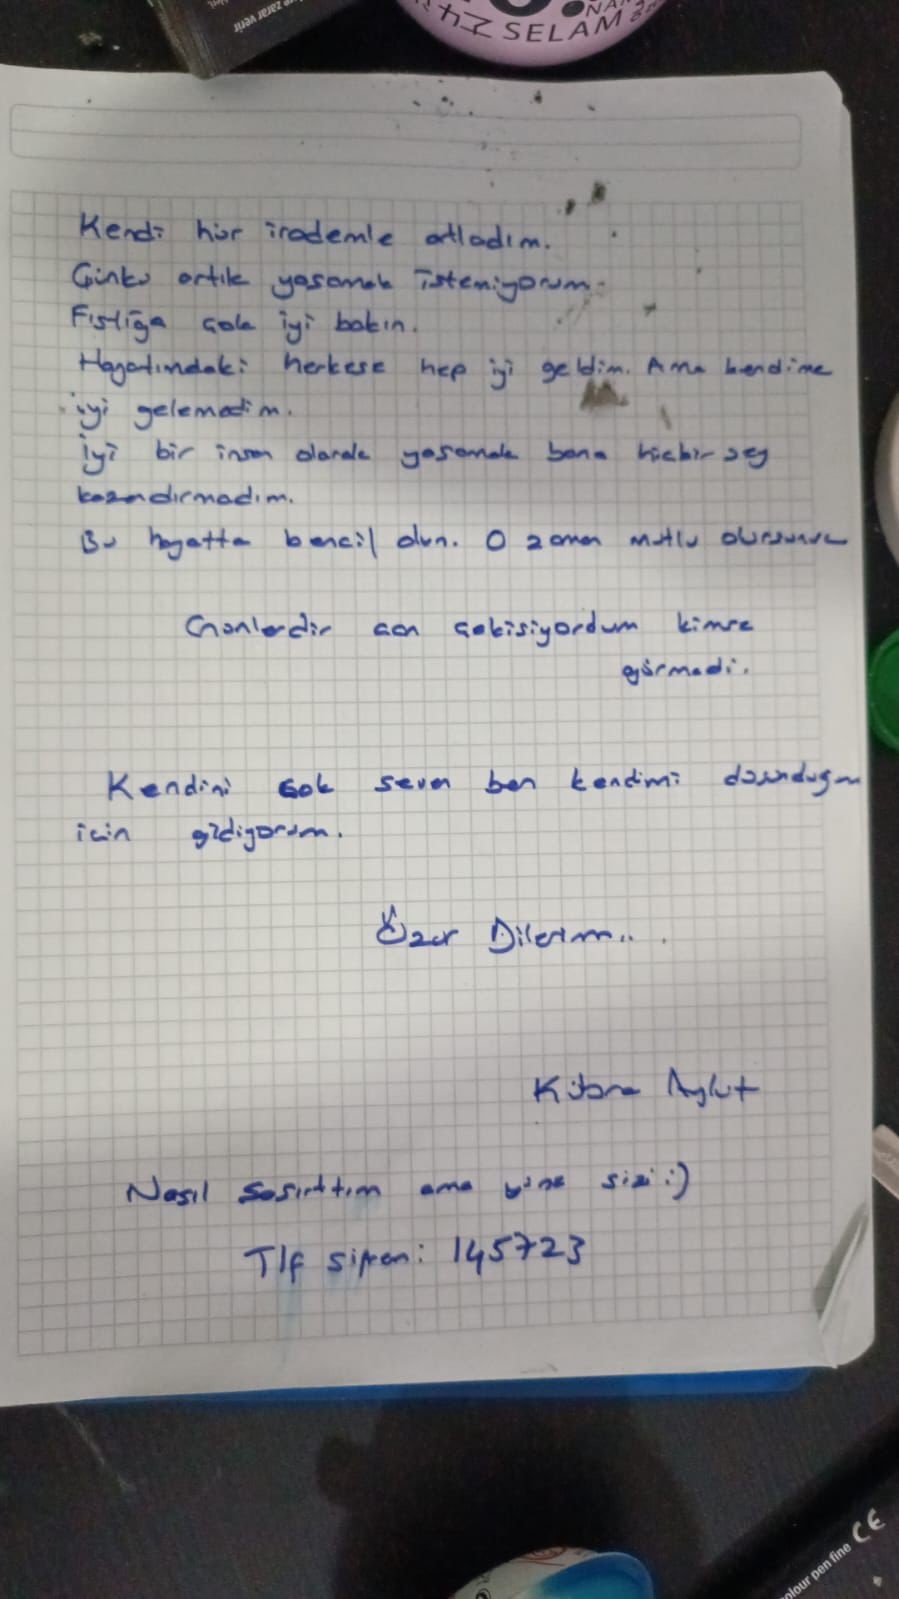 zarar verir
SELAM
Kendi hür irademle atladım.
Çünkü artık yaşamak istemiyorum.
Fıstığa çok iyi bakın.
Hayatımdaki herkese hep iyi geldim. Ama kendime
iyi gelemedim.
İyi bir insan olarak yaşamak bana hiçbir şey
kazandırmadım.
Bu hayatta bencil olun. O zaman mutlu olursunuz
Günlerdir can çekişiyordum kimse
görmedi.
Kendini çok seven ben kendimi düşündüğüm
için gidiyorum.
Özür Dilerim...
Nasıl şaşırttım ama yine sizi :)
Tlf şifren: 145723
colour pen fine CE